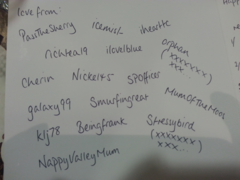 love from:
PassTheSherry icemusk iheartte orphan
richtea19 ilovelblue (xxxxxxx)
xxx
Cherin Nickel45 SPOfficer
galaxy99 Smurfingreat MumOfTheMoos
klj78 Beingfrank Stressybird
(xxxxxxx)
xxx
NappyValleyMum